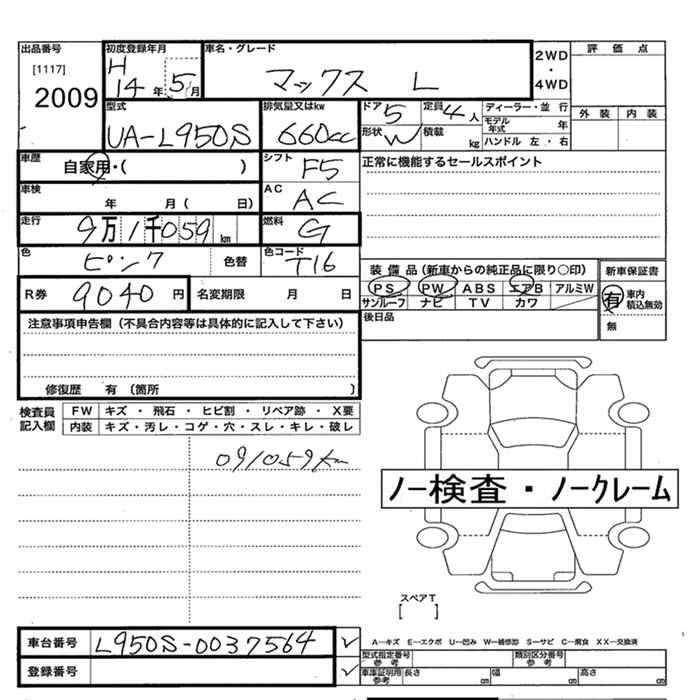 出品番号 初度登録年月 車名・グレード 2WD・4WD 評価点
[1117] H 14年 5月 マックス L
2009 外装 内装
型式 排気量又はkw ドア 5 定員 4人 ディーラー・並行
UA-L950S 660cc 形状 W 積載 kg モデル年式 年
ハンドル 左・右
車歴 自家用・( ) シフト F5 正常に機能するセールスポイント
車検 年 月( 日) AC AC
走行 9万1千059km 燃料 G
色 ピンク 色替 色コード T16
装備品(新車からの純正品に限り○印) 新車保証書
R券 9040円 名変期限 月 日 PS PW ABS エアB アルミW 有 車内積込無効
サンルーフ ナビ TV カワ 無
注意事項申告欄(不具合内容等は具体的に記入して下さい) 後日品
修復歴 有 (箇所 )
検査員記入欄 FW キズ・飛石・ヒビ割・リペア跡・X要
内装 キズ・汚レ・コゲ・穴・スレ・キレ・破レ
091059km
ノー検査・ノークレーム
スペアT
[ ]
車台番号 L950S-0037564 ✓ A―キズ E―エクボ U―凹み W―補修跡 S―サビ C―腐食 XX―交換済
登録番号 ✓ 型式指定番号 参考 類別区分番号 参考
車庫証明用参考 長さ cm 幅 cm 高さ cm